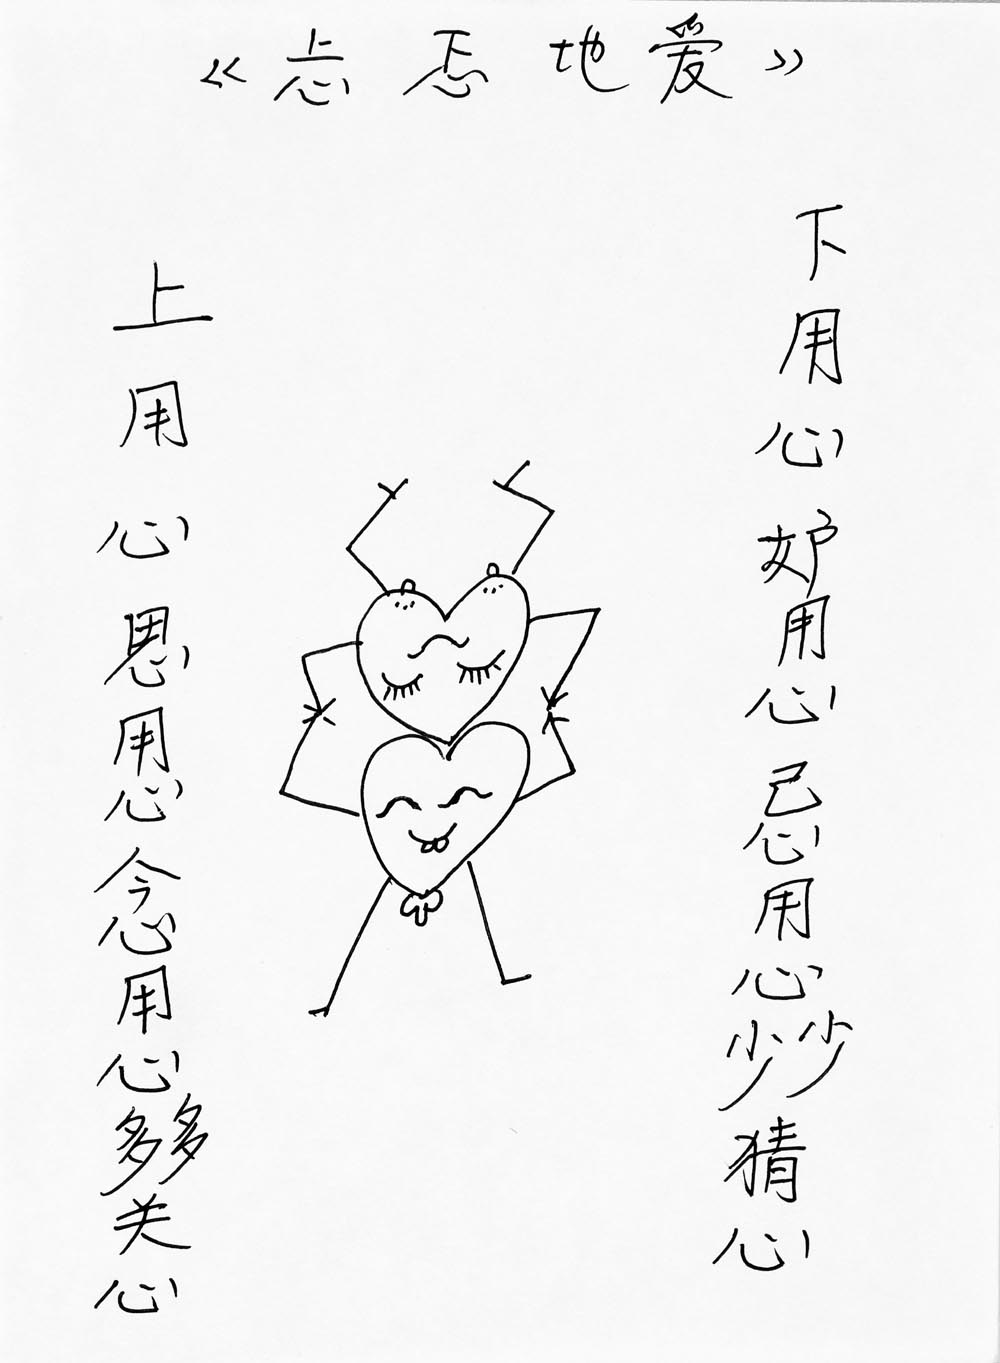 《忐忑地爱》
上用心恩用心念用心多多关心
下用心妒用心忌用心少少猜心